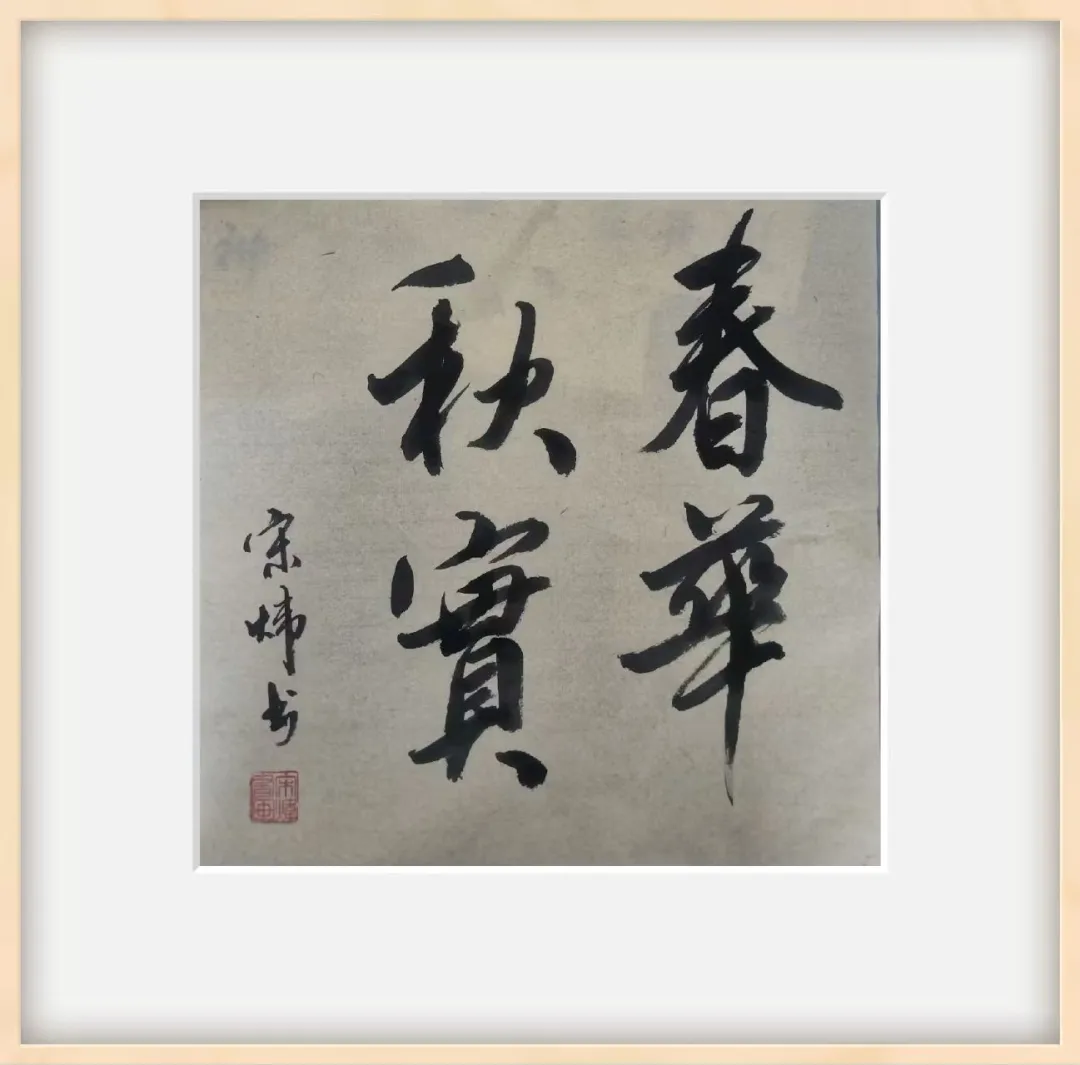 春華
秋實
宋炜书